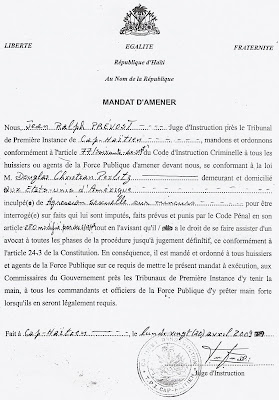 LIBERTE EGALITE FRATERNITE
République d'Haïti
Au Nom de la République
MANDAT D'AMENER
Nous, Jean Ralph PRÉVOST Juge d'Instruction près le Tribunal
de Première Instance de Cap-Haïtien, mandons et ordonnons
conformément à l'article 77 du Code d'Instruction Criminelle à tous
les huissiers ou agents de la Force Publique d'amener devant nous, se conformant à la loi
M. Douglas Christian Perlitz demeurant et domicilié
aux Etats-unis d'Amérique
inculpé(e) de Agression sexuelle sur mineurs pour être
interrogé(e) sur faits qui lui sont imputés, faits prévus et punis par le Code Pénal en son
article tout en l'avisant qu'il a le droit de se faire assister d'un
avocat à toutes les phases de la procédure jusqu'à jugement définitif, ce conformément à
l'article 24-3 de la Constitution. En conséquence, il est mandé et ordonné à tous huissiers
et agents de la Force Publique sur ce requis de mettre le présent mandat à exécution, aux
Commissaires du Gouvernement près les Tribunaux de Première Instance d'y tenir la
main, à tous les commandants et officiers de la Force Publique d'y prêter main forte
lorsqu'ils en seront légalement requis.
Fait à Cap-Haïtien, le lundi vingt (20) avril 2009
Juge d'Instruction